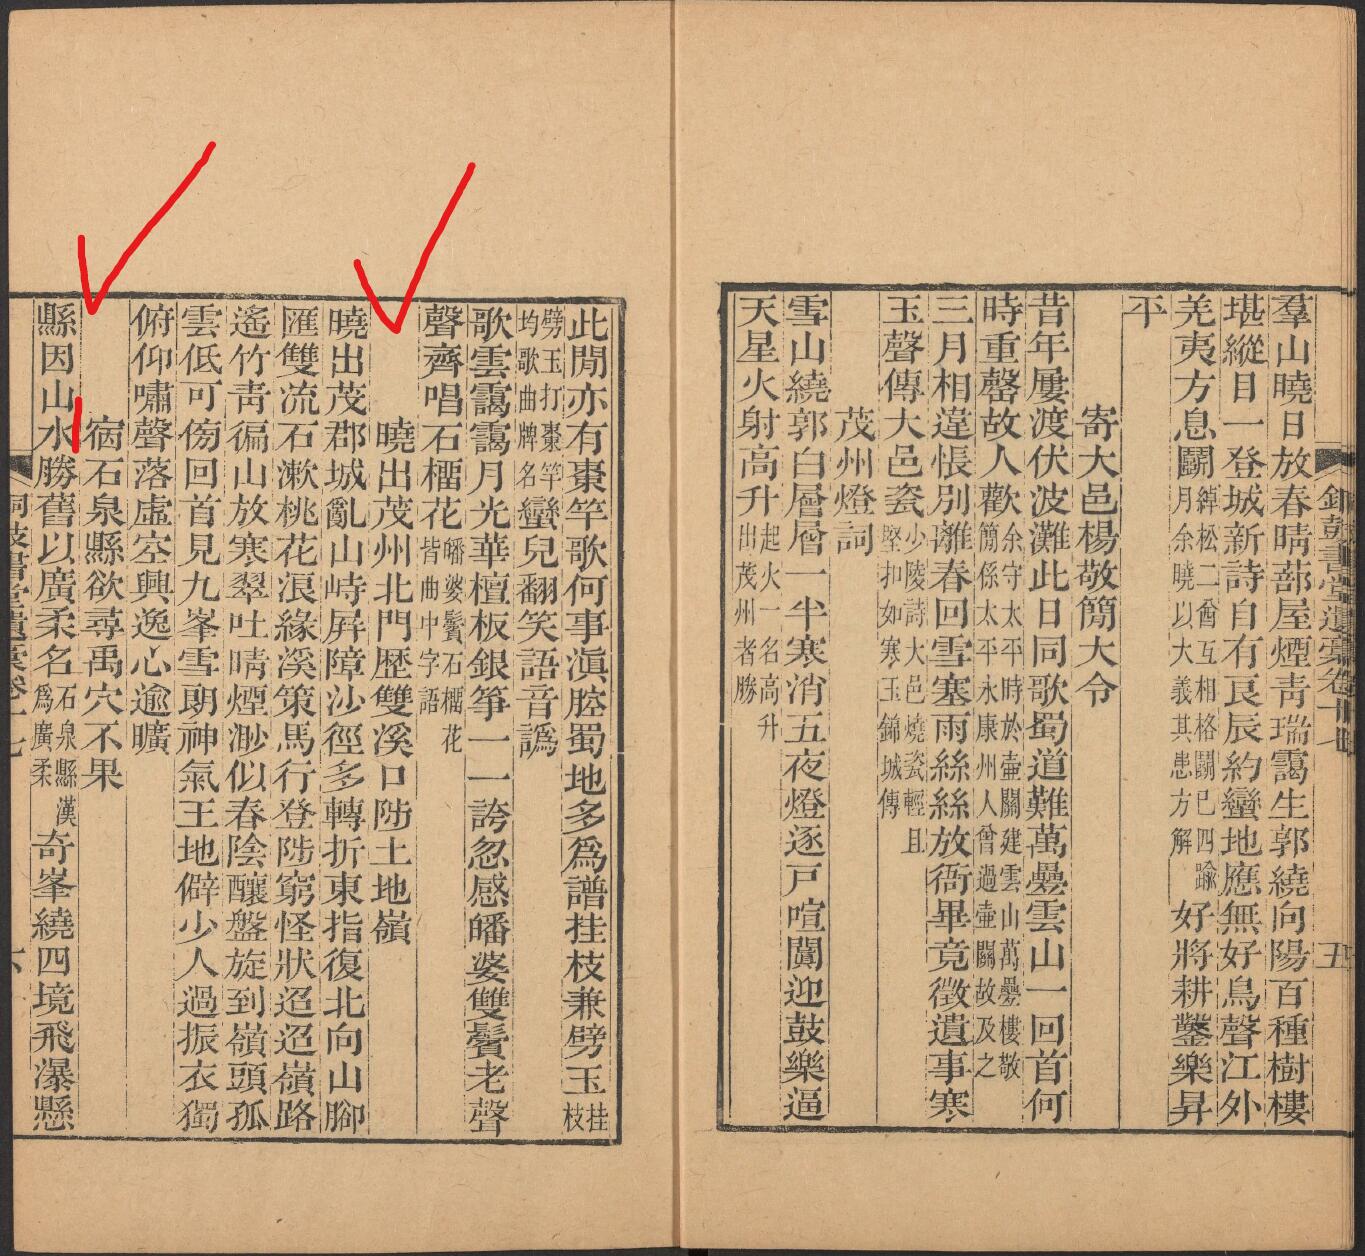 銅鼓書堂遺藁卷十七 五
羣山曉日放春晴蔀屋煙青瑞靄生郭繞向陽百種樹樓
堪縱目一登城新詩自有良辰約蠻地應無好鳥聲江外
羌夷方息鬭綽松二酋互相格鬭已四踰月余曉以大義其患方解好將耕鑿樂昇
平
寄大邑楊敬簡大令
昔年屢渡伏波灘此日同歌蜀道難萬疊雲山一回首何
時重罄故人歡余守太平時於壺關建雲山萬疊樓敬簡係太平永康州人曾過壺關故及之
三月相違悵別離春回雪塞雨絲絲放衙畢竟徵遺事寒
玉聲傳大邑瓷少陵詩大邑燒瓷輕且堅扣如寒玉錦城傳
茂州燈詞
雪山繞郭白層層一半寒消五夜燈逐戸喧闐迎鼓樂逼
天星火射高升起火一名高升出茂州者勝
此閒亦有棗竿歌何事滇腔蜀地多爲譜挂枝兼劈玉桂枝
劈玉打棗竿均歌曲牌名蠻兒翻笑語音譌
歌雲靄靄月光華檀板銀箏一一誇忽感皤婆雙鬢老聲
聲齊唱石橊花皤婆鬢石橊花皆曲中字語
曉出茂州北門歴雙溪口陟土地嶺
曉出茂郡城亂山峙屛障沙徑多轉折東指復北向山腳
匯雙流石漱桃花浪緣溪策馬行登陟窮怪狀迢迢嶺路
遙竹靑徧山放寒翠吐晴煙渺似春陰釀盤旋到嶺頭孤
雲低可傍回首見九峯雪朗神氣王地僻少人過振衣獨
俯仰嘯聲落虛空興逸心逾曠
宿石泉縣欲尋禹穴不果
縣因山水勝舊以廣柔名石泉縣漢爲廣柔奇峯繞四境飛瀑懸
銅鼓書堂遺藁卷十七 六